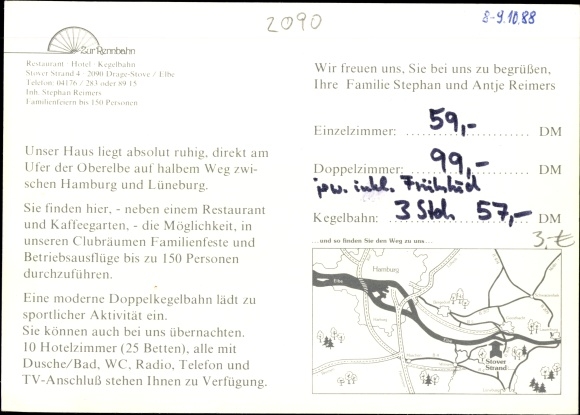 2090
8-9.10.88
Zur Rennbahn
Restaurant · Hotel · Kegelbahn
Stover Strand 4 · 2090 Drage-Stove / Elbe
Telefon: 04176 / 283 oder 89 15
Inh. Stephan Reimers
Familienfeiern bis 150 Personen
Unser Haus liegt absolut ruhig, direkt am
Ufer der Oberelbe auf halbem Weg zwi-
schen Hamburg und Lüneburg.
Sie finden hier, - neben einem Restaurant
und Kaffeegarten, - die Möglichkeit, in
unseren Clubräumen Familienfeste und
Betriebsausflüge bis zu 150 Personen
durchzuführen.
Eine moderne Doppelkegelbahn lädt zu
sportlicher Aktivität ein.
Sie können auch bei uns übernachten.
10 Hotelzimmer (25 Betten), alle mit
Dusche/Bad, WC, Radio, Telefon und
TV-Anschluß stehen Ihnen zu Verfügung.
Wir freuen uns, Sie bei uns zu begrüßen,
Ihre Familie Stephan und Antje Reimers
Einzelzimmer: 59,- DM
Doppelzimmer: 99,- DM
jew. inkl. Frühstück
Kegelbahn: 3 Std. 57,- DM
3,-€
...und so finden Sie den Weg zu uns...
Hamburg
Elbe
Stover
Strand